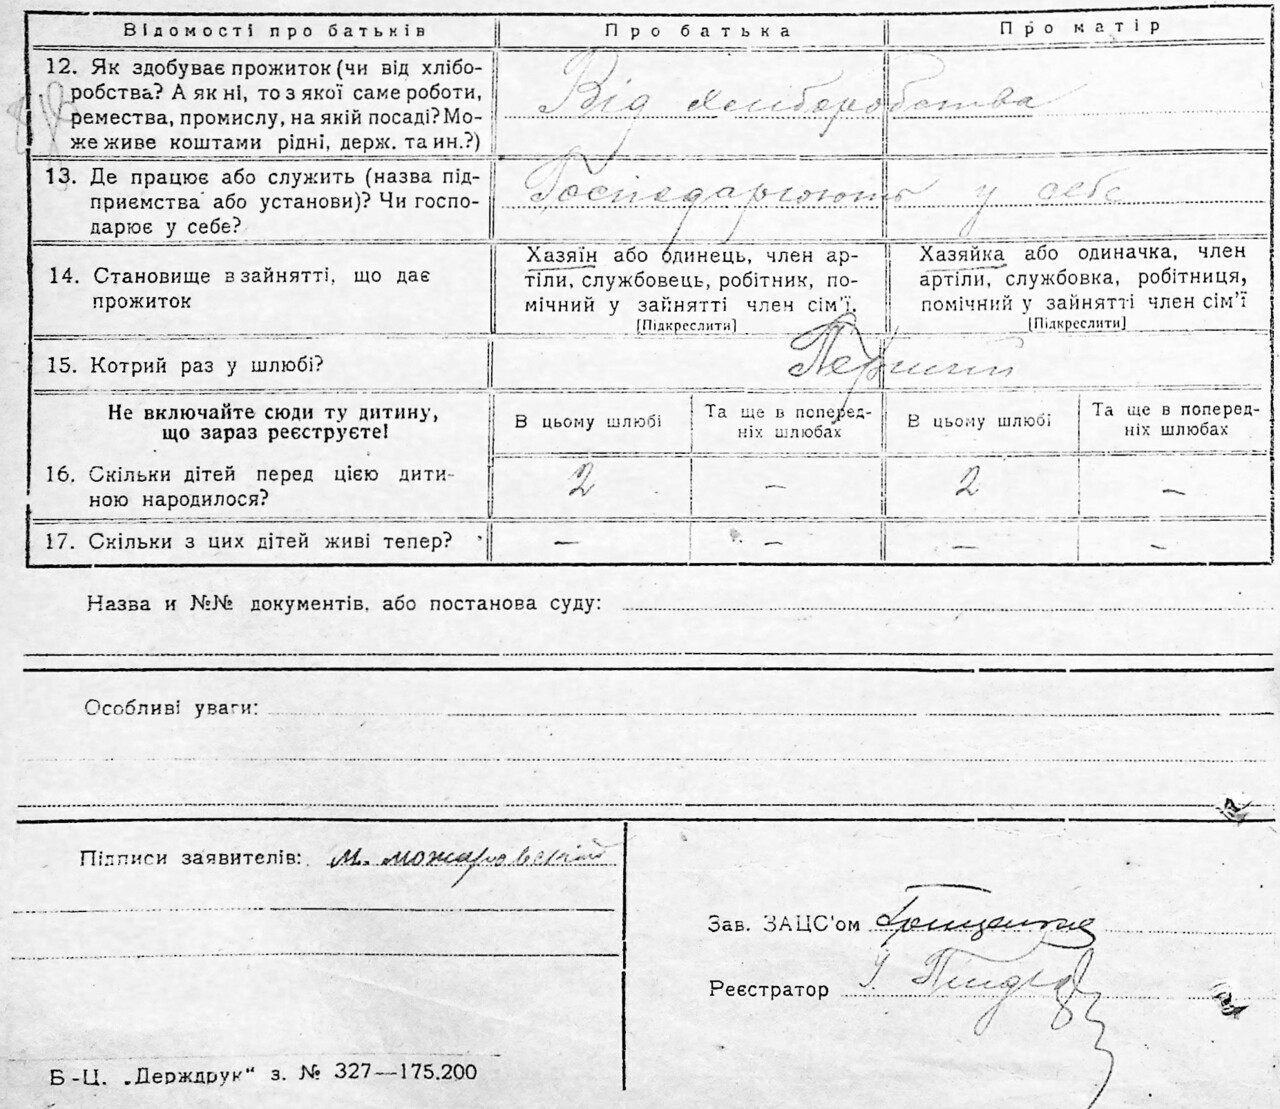 Відомості про батьків Про батька Про матір
12. Як здобуває прожиток (чи від хлібо-
робства? А як ні, то з якої саме роботи,
ремества, промислу, на якій посаді? Мо-
же живе коштами рідні, держ. та ин.?)
Від хліборобства
13. Де працює або служить (назва під-
приємства або установи)? Чи госпо-
дарює у себе?
Господарюють у себе
14. Становище в зайнятті, що дає
прожиток
Хазяїн або одинець, член ар-
тіли, службовець, робітник, по-
мічний у зайнятті член сім'ї.
[Підкреслити]
Хазяйка або одиначка, член
артіли, службовка, робітниця,
помічний у зайнятті член сім'ї
[Підкреслити]
15. Котрий раз у шлюбі? Перший
Не включайте сюди ту дитину,
що зараз реєструєте!
В цьому шлюбі
Та ще в поперед-
ніх шлюбах
В цьому шлюбі
Та ще в поперед-
ніх шлюбах
16. Скільки дітей перед цією дити-
ною народилося?
2 — 2 —
17. Скільки з цих дітей живі тепер? — — — —
Назва и №№ документів, або постанова суду:
Особливі уваги:
Підписи заявителів: м. можаровський
Зав. ЗАЦС'ом Грищенко
Реєстратор І.
Б-Ц. „Держдрук“ з. № 327—175.200